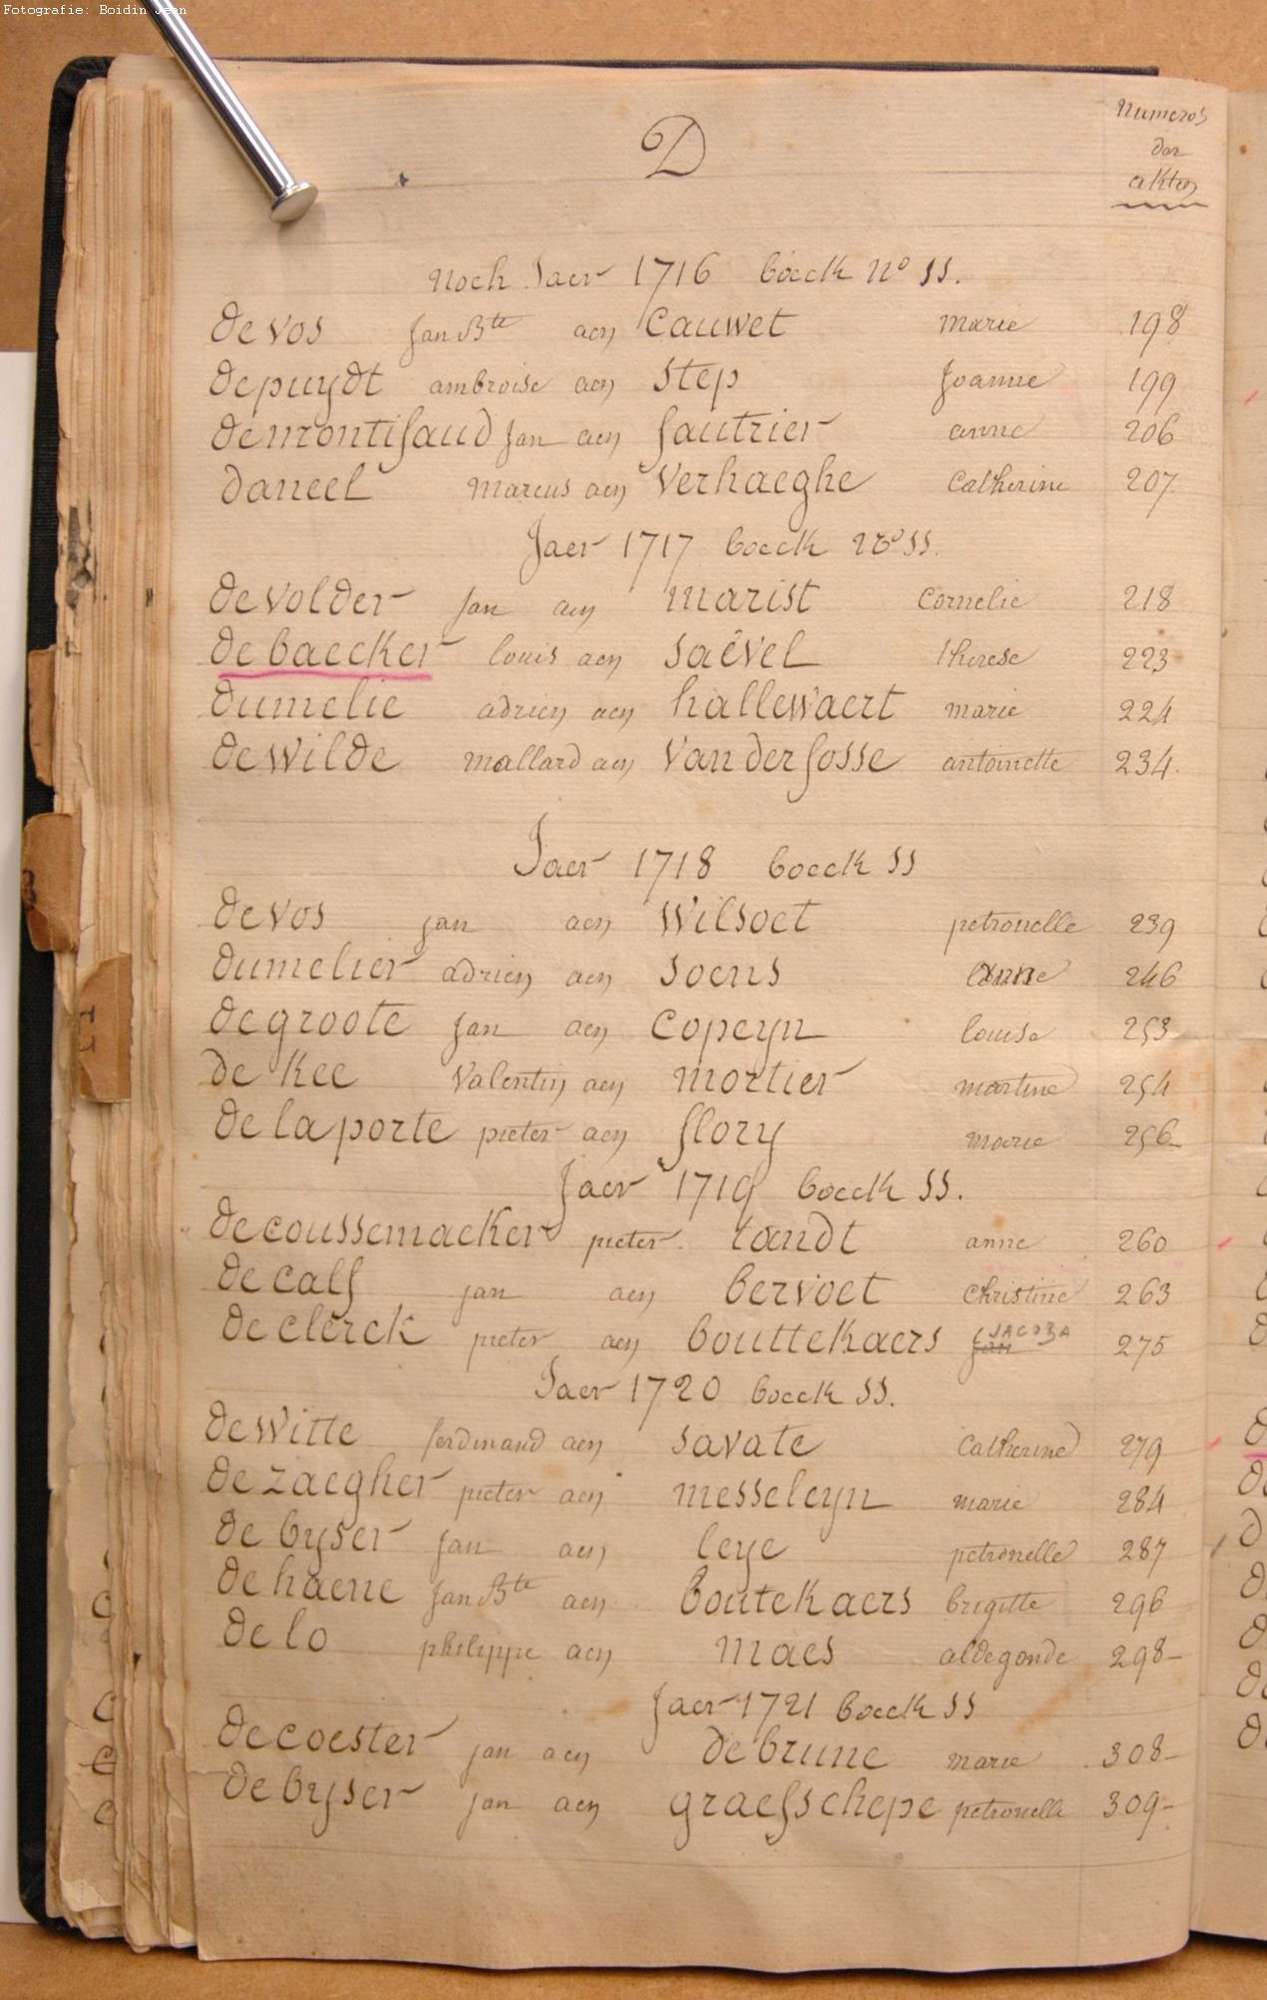 Fotografie: Boidin Jean
Numeros
der
akten
D
Noch Jaer 1716 boeck No SS.
devos jan Bte aen Cauwet marie 198
depuydt ambroise aen Step joanne 199
demontifaud jan aen fautrier anne 206
daneel marcus aen Verhaeghe Catherine 207
Jaer 1717 boeck No SS.
devolder jan aen marist Cornelie 218
debaecker louis aen Saëvel therese 223
dumelie adrien aen hallewaert marie 224
dewilde mallard aen Vanderfosse antoinette 234
Jaer 1718 boeck SS
devos jan aen Wilsoet petronelle 239
dumelier adrien aen Soens anne 246
degroote jan aen Copeyn louise 253
de Kee Valentin aen mortier martine 254
de la porte pieter aen flory marie 256
Jaer 1719 boeck SS.
decoussemacker pieter tandt anne 260
de calf jan aen bervoet christine 263
de clerck pieter aen bouttekaers jan JACOBA 275
Jaer 1720 boeck SS.
dewitte ferdinand aen Savate Catherine 279
de zaegher pieter aen messeleyn marie 284
de byser jan aen leye petronelle 287
de haene jan Bte aen boutekaers brigitte 296
de lo philippe aen maes aldegonde 298
Jaer 1721 boeck SS
decoester jan aen debrune marie 308
debyser jan aen graefschepe petronelle 309